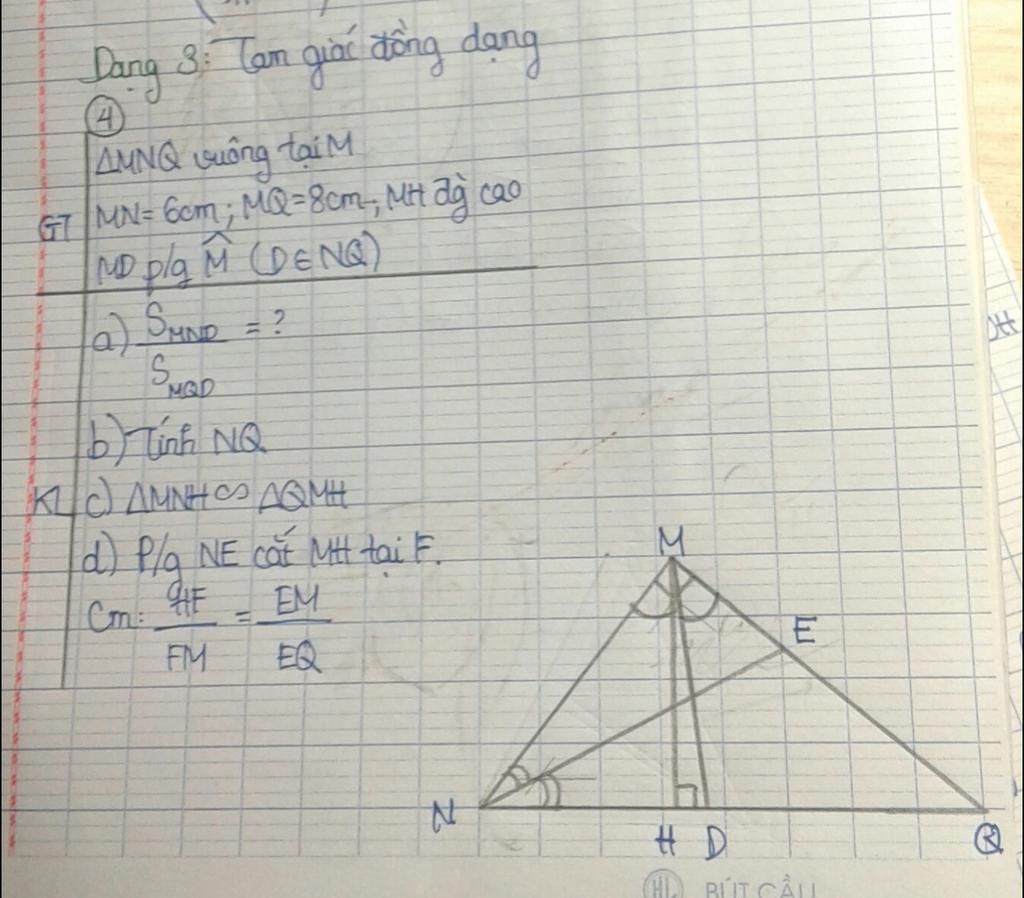 Dạng 3: Tam giác đồng dạng
④
ΔMNQ vuông tại M
GT MN = 6cm; MQ = 8cm; MH đg cao
MD p/g M̂ (D ∈ NQ)
a) S_MND / S_MQD = ?
b) Tính NQ
KL c) ΔMNH ∽ ΔQMH
d) P/g NE cắt MH tại F.
Cm: HF/FM = EM/EQ
M
E
N
H D
Q
HL BÚT CẦU